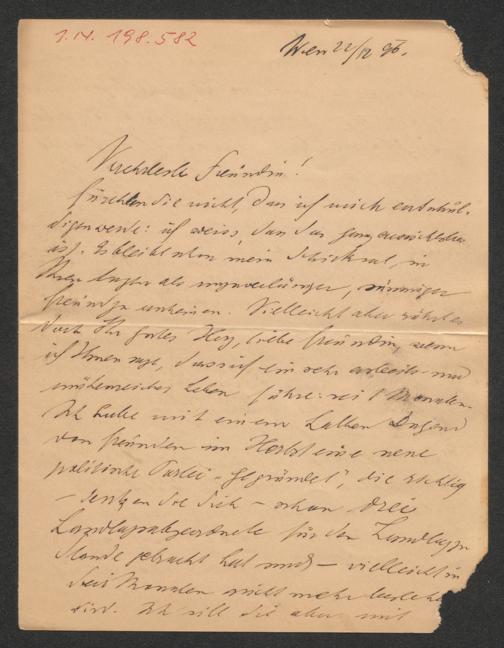 I.N. 198.582
Wien 22/12 96.
Verehrteste Freundin!
Fürchten Sie nicht, dass ich mich entschul-
digen werde: ich weiss, dass das ganz aussichtslos
ist. Es bleibt schon mein Schicksal, in
Ihren Augen als unzuverlässiger,
Freund zu erscheinen. Vielleicht aber rührt es
doch Ihr gutes Herz, liebe Freundin, wenn
ich Ihnen sage, dass ich ein sehr arbeits- und
mühenreiches Leben führe: seit Monaten.
Ich habe mit einem halben Dutzend
von Freunden im Herbst eine neue
politische Partei „gegründet", die richtig
– denken Sie sich – schon drei
Landtagsabgeordnete für den Landtag zu
Stande gebracht hat und – vielleicht in
drei Monaten nicht mehr
wird. Ich will Sie aber mit